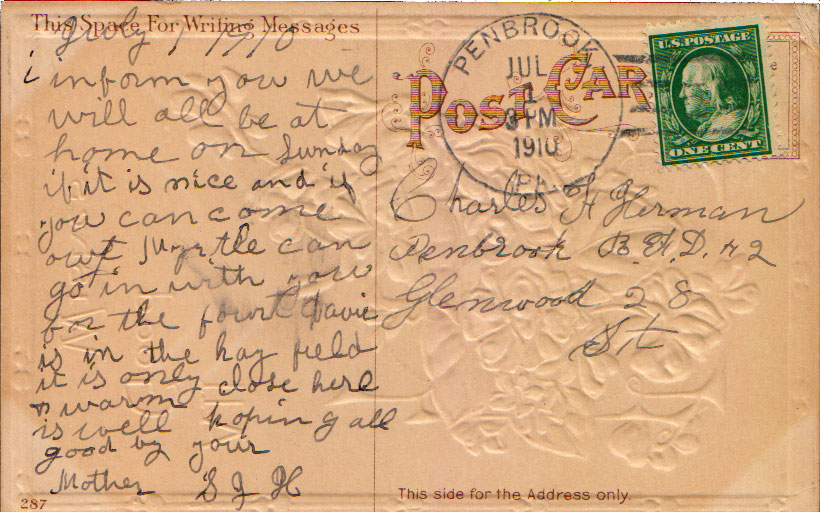 This Space For Writing Messages
July 1 1910
i inform you we
will all be at
home on Sunday
if it is nice and if
you can come
out Myrtle can
go in with you
for the fourt Davie
is in the hay field
it is only close here
warm
is well hoping all
good by your
Mother S J H
287
POST CARD
PENBROOK
JUL
1
3 PM
1910
PA.
U.S. POSTAGE
ONE CENT
Charles H Herman
Penbrook R.F.D. #2
Glenwood 28
St
This side for the Address only.